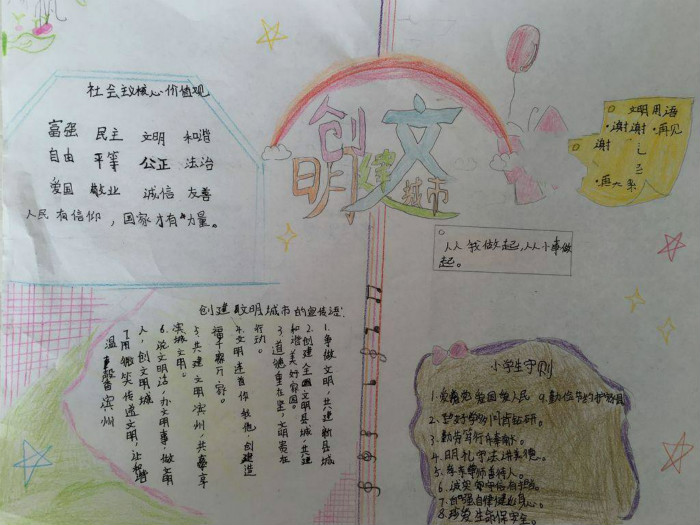 社会主义核心价值观
富强 民主 文明 和谐
自由 平等 公正 法治
爱国 敬业 诚信 友善
人民有信仰，国家才有“力量。
创建文明城市
文明用语
·谢谢 ·再见
谢
从从我做起,从小事做
起。
创建文明城市的宣传语:
1.争做文明，共建新县城
2.创建全国文明县城，共建
和谐美好家园。
3.道德重在
行动。
4.文明连着你我他，创建造
福千家万家。
5.共建文明滨州，共享
滨城文明。
6.说文明话，办文明事，做文明
人，创文明城
7.用微笑传递文明，让
温 滨州
小学生守则
1.爱党爱国爱人民
2.好学多问肯钻研。
3.勤劳笃行
4.明礼守法讲美德。
5.孝亲尊师善待人。
6.诚实守信
7.自强自律健身心。
8.珍爱生命保安全。